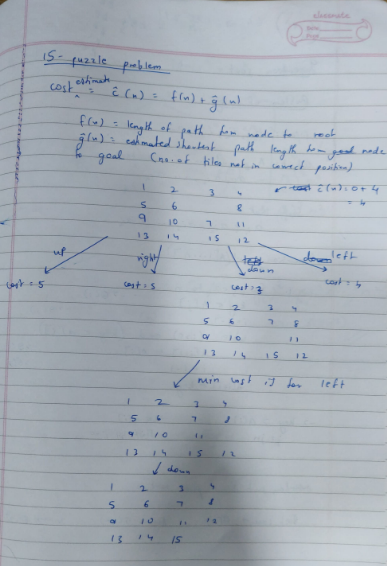 classmate
Date
Page
15-puzzle problem
cost estimate = ĉ(x) = f(x) + ĝ(x)
f(x) = length of path from node to root
ĝ(x) = estimated shortest path length from node
to goal (no. of tiles not in correct position)
1 2 3 4 ĉ(x) = 0 + 4
5 6 8 = 4
9 10 7 11
13 14 15 12
up right down left
cost = 5 cost = 5 cost = cost = 4
1 2 3 4
5 6 7 8
9 10 11
13 14 15 12
min cost is for left
1 2 3 4
5 6 7 8
9 10 11
13 14 15 12
down
1 2 3 4
5 6 7 8
9 10 11 12
13 14 15